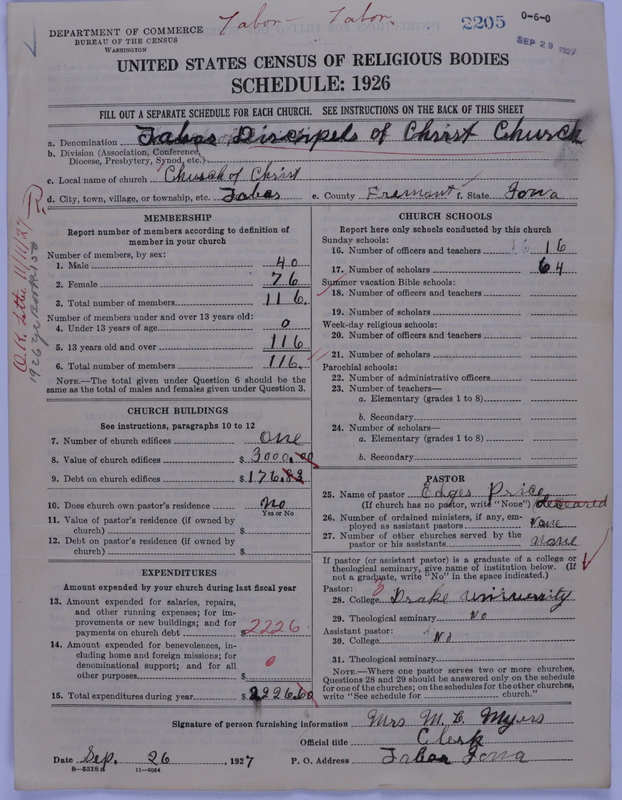 Tabor - Tabor
DEPARTMENT OF COMMERCE
BUREAU OF THE CENSUS
WASHINGTON
2205
0-6-0
SEP 29 1927
UNITED STATES CENSUS OF RELIGIOUS BODIES
SCHEDULE: 1926
FILL OUT A SEPARATE SCHEDULE FOR EACH CHURCH. SEE INSTRUCTIONS ON THE BACK OF THIS SHEET
a. Denomination Tabor Discipels of Christ Church
b. Division (Association, Conference, Diocese, Presbytery, Synod, etc.)
c. Local name of church Church of Christ
d. City, town, village, or township, etc. Tabor e. County Fremont f. State Iowa
O.K. Letter 11/11/27
MEMBERSHIP
Report number of members according to definition of
member in your church
Number of members, by sex:
1. Male 40
2. Female 76
3. Total number of members 116.
Number of members under and over 13 years old:
4. Under 13 years of age 0
5. 13 years old and over 116
6. Total number of members 116.
NOTE.—The total given under Question 6 should be
same as the total of males and females given under Question 3.
CHURCH BUILDINGS
See instructions, paragraphs 10 to 12
7. Number of church edifices One
8. Value of church edifices $3000.00
9. Debt on church edifices $176.83
10. Does church own pastor's residence? No
Yes or No
11. Value of pastor's residence (if owned by
church) $
12. Debt on pastor's residence (if owned by
church) $
EXPENDITURES
Amount expended by your church during last fiscal year
13. Amount expended for salaries, repairs,
and other running expenses; for im-
provements or new buildings; and for
payments on church debt $2226.
14. Amount expended for benevolences, in-
cluding home and foreign missions; for
denominational support; and for all
other purposes $ 0
15. Total expenditures during year $2226.00
CHURCH SCHOOLS
Report here only schools conducted by this church
Sunday schools:
16. Number of officers and teachers 16
17. Number of scholars 64
Summer vacation Bible schools:
18. Number of officers and teachers
19. Number of scholars
Week-day religious schools:
20. Number of officers and teachers
21. Number of scholars
Parochial schools:
22. Number of administrative officers
23. Number of teachers—
a. Elementary (grades 1 to 8)
b. Secondary
24. Number of scholars—
a. Elementary (grades 1 to 8)
b. Secondary
PASTOR
25. Name of pastor Edger Price
(If church has no pastor, write "None")
26. Number of ordained ministers, if any, em-
ployed as assistant pastors None
27. Number of other churches served by the
pastor or his assistants none
If pastor (or assistant pastor) is a graduate of a college or
theological seminary, give name of institution below. (If
not a graduate, write "No" in the space indicated.)
Pastor:
28. College Drake University
29. Theological seminary No
Assistant pastor:
30. College No
31. Theological seminary
NOTE.—Where one pastor serves two or more churches,
Questions 28 and 29 should be answered only on the schedule
for one of the churches; on the schedules for the other churches,
write "See schedule for church."
Signature of person furnishing information Mrs M. E. Myers
Official title Clerk
Date Sep. 26, 1927 P. O. Address Tabor Iowa
8—5316a 11—9034